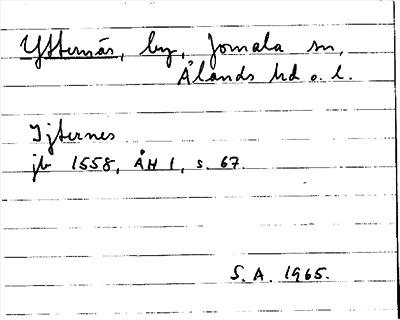 Ytternäs, by, Jomala sn,
Ålands hd o. l.
Ijternes
jb 1558, ÅH 1, s. 67.
S. A. 1965.